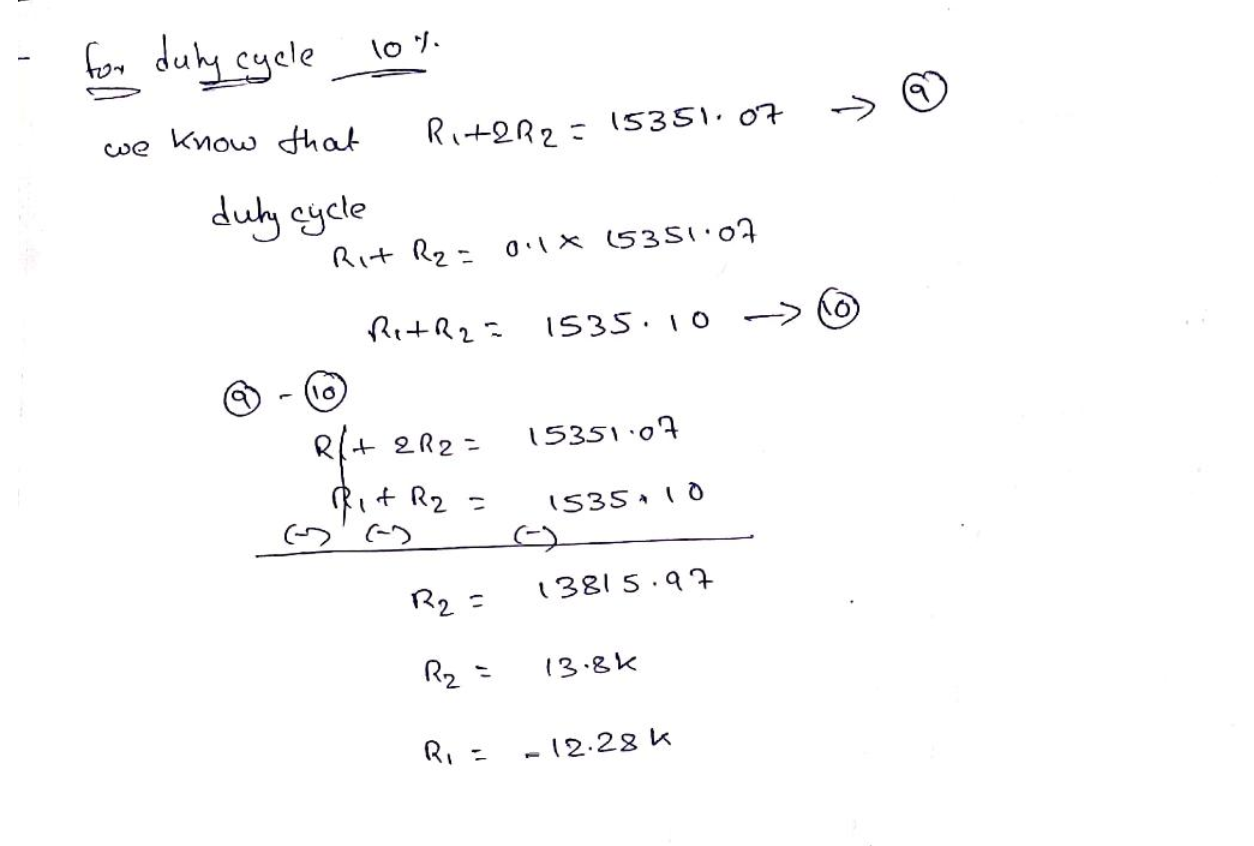 - for duty cycle 10%
we know that R1+2R2 = 15351.07 → ⑨
duty cycle
R1+ R2 = 0.1 x 15351.07
R1+R2 = 1535.10 → ⑩
⑨ - ⑩
R1+ 2R2 = 15351.07
R1+ R2 = 1535.10
(-) (-) (-)
R2 = 13815.97
R2 = 13.8k
R1 = -12.28k